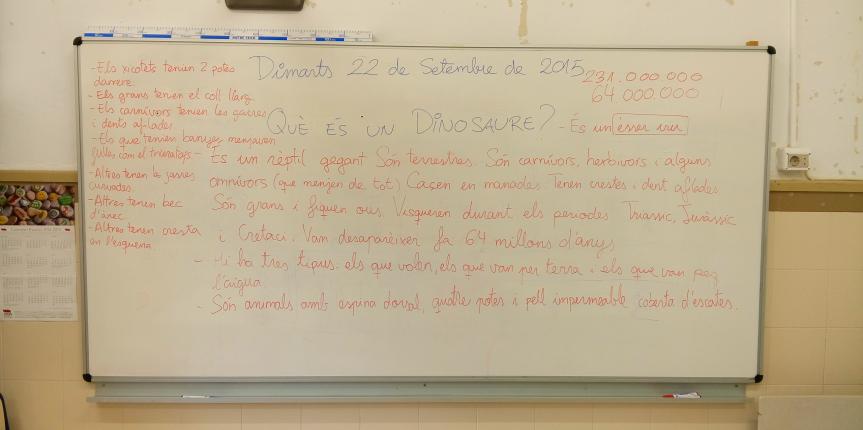 Dimarts 22 de Setembre de 2015
231.000.000
64.000.000
- Els xicotets tenien 2 potes
darrere.
- Els grans tenien el coll llarg
- Els carnívors tenien les garres
i dents aflades.
- Els que tenien banyes menjaven
fulles com el triceratops
- Altres tenen les garres
curvades.
- Altres tenen bec
d'ànec.
- Altres tenien cresta
en l'esquena
QUÈ ÉS UN DINOSAURE? - És un ésser viu
- És un rèptil gegant. Són terrestres. Són carnívors, herbívors i alguns
omnívors (que mengen de tot) Caçen en manades. Tenen crestes i dent aflades
Són grans i fiquen ous. Visqueren durant els períodes Triàssic, Juràssic
i Cretaci. Van desaparèixer fa 64 millons d'anys
- Hi ha tres tipus: els que volen, els que van per terra i els que van per
l'aigua.
- Són animals amb espina dorsal, quatre potes i pell impermeable coberta d'escates.